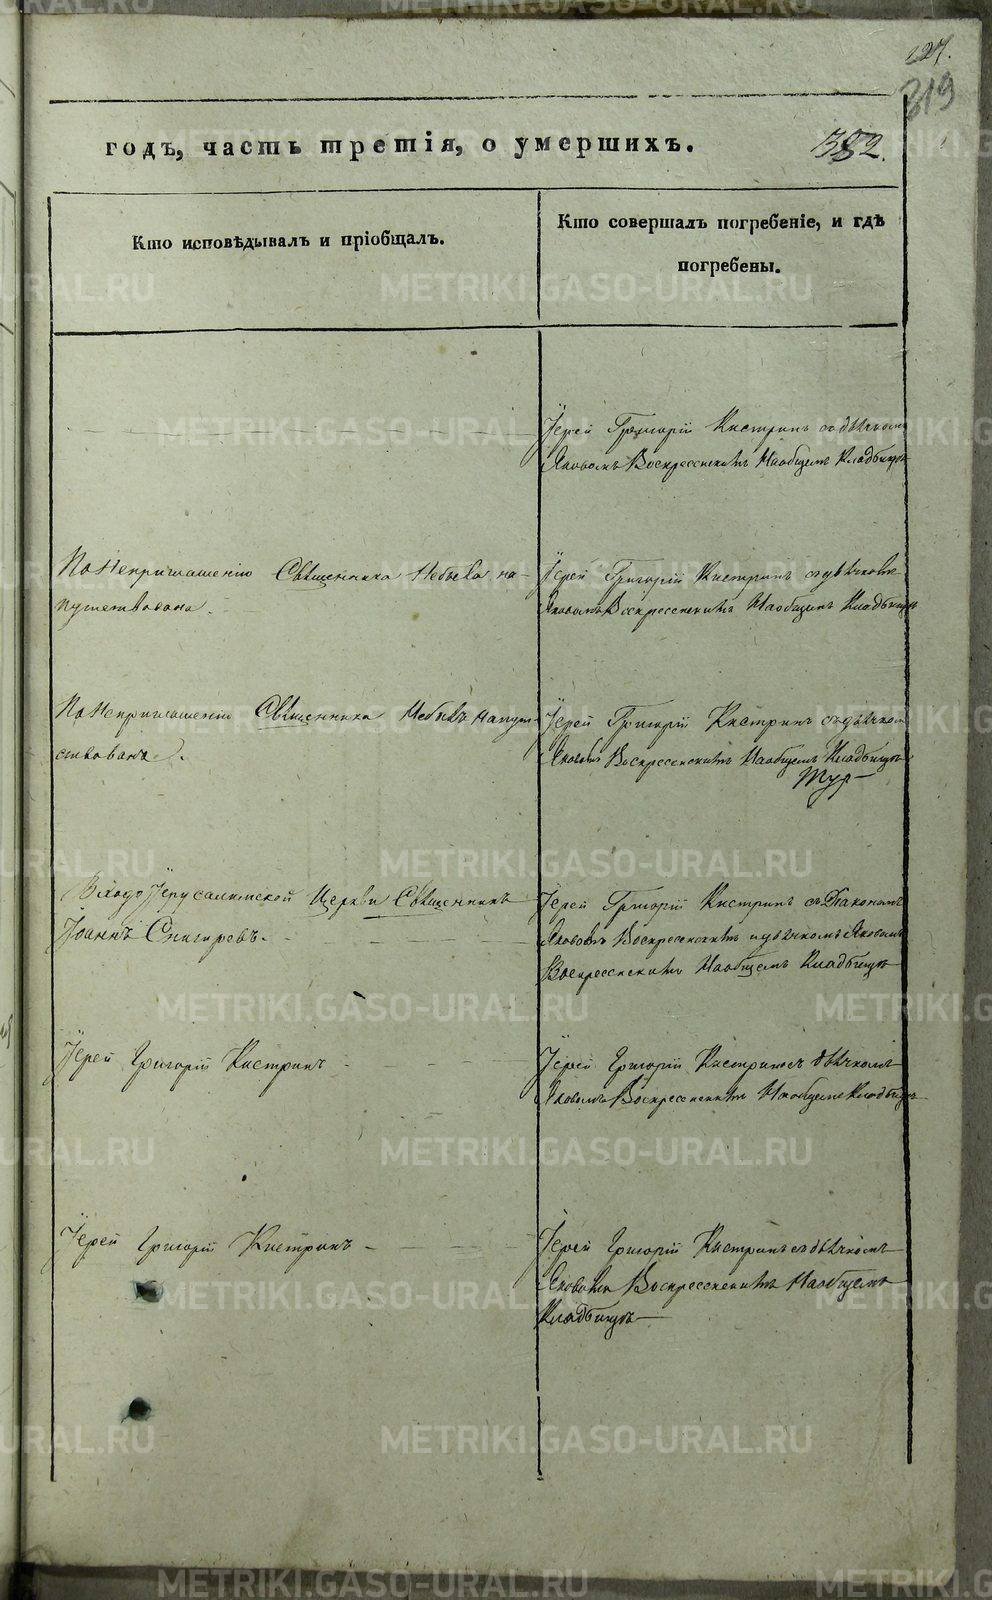 319
годъ, часть третія, о умершихъ.
382.
Кто исповѣдывалъ и пріобщалъ.
Кто совершалъ погребеніе, и гдѣ
погребены.
Іерей Григорій Кистринъ съ дьячкомъ
Яковомъ Воскресенскимъ На общемъ Кладбищѣ
По Неприглашенію Священника Небыла на-
путствована.
Іерей Григорій Кистринъ съ дьячкомъ
Яковомъ Воскресенскимъ На общемъ Кладбищѣ
По Неприглашенію Священника Небылъ напут-
ствованъ.
Іерей Григорій Кистринъ съ дьячком
Яковомъ Воскресенскимъ На общемъ Кладбищѣ
Входо Іерусалимской Церкви Священникъ
Іоаннъ Снигиревъ.
Іерей Григорій Кистринъ съ Діакономъ
Яковомъ Воскресенскимъ и дьячкомъ Яковомъ
Воскресенскимъ На общемъ Кладбищѣ
Іерей Григорій Кистринъ
Іерей Григорій Кистринъ съ дьячкомъ
Яковомъ Воскресенскимъ На общемъ Кладбищѣ
Іерей Григорій Кистринъ
Іерей Григорій Кистринъ съ дьячкомъ
Яковомъ Воскресенскимъ На общемъ
Кладбищѣ
METRIKI.GASO-URAL.RU